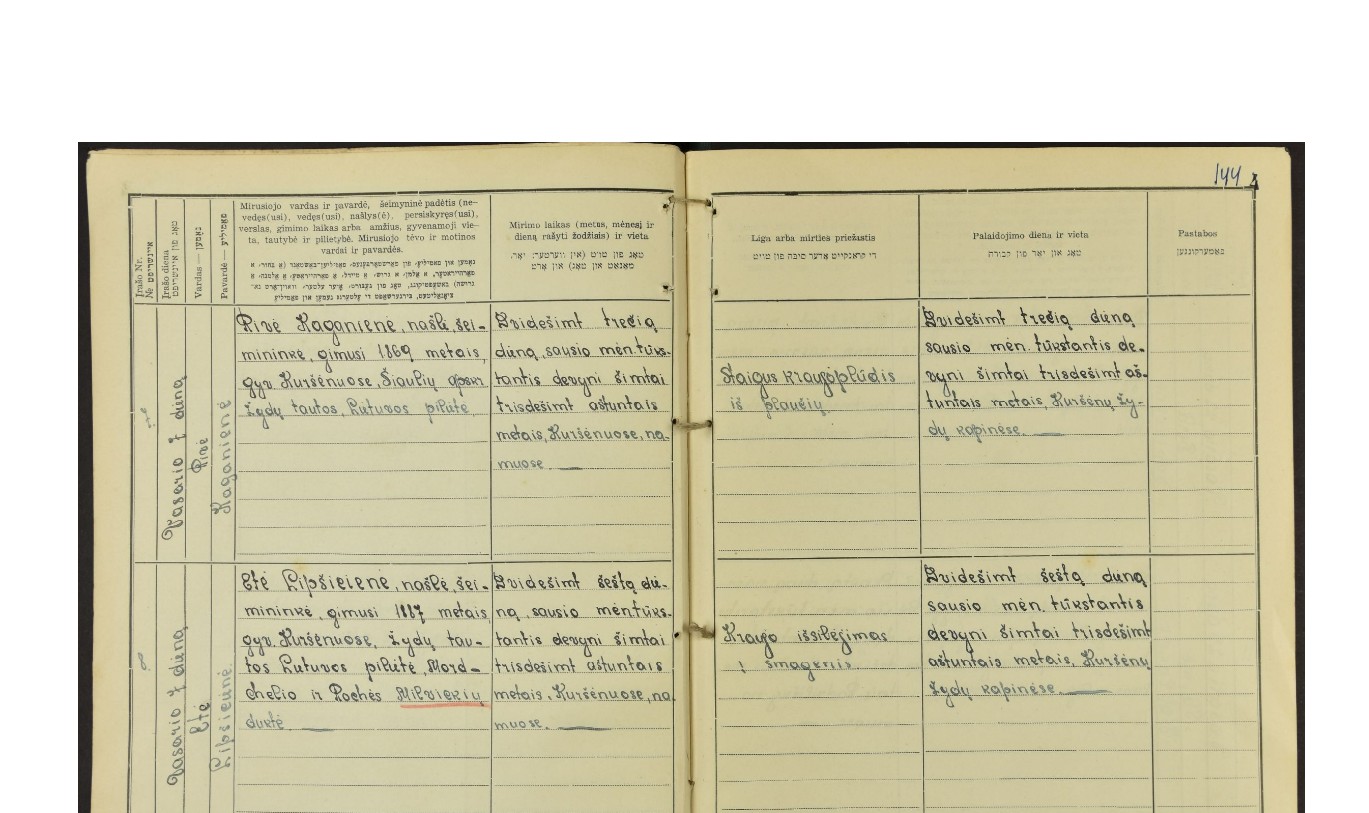 144
Įrašo Nr.
№ איינשרײַבס
Įrašo diena
טאָג פון איינשרײַבס
Vardas — נאָמען
Pavardė — פאַמיליע
Mirusiojo vardas ir pavardė, šeimyninė padėtis (ne-
vedęs(usi), vedęs(usi), našlys(ė), persiskyręs(usi),
verslas, gimimo laikas arba amžius, gyvenamoji vie-
ta, tautybė ir pilietybė. Mirusiojo tėvo ir motinos
vardai ir pavardės.
Mirimo laikas (metus, mėnesį ir
dieną rašyti žodžiais) ir vieta
טאָג פון טויט (אין ווערטער: יאָר,
מאָנאַט און טאָג) און אָרט
Liga arba mirties priežastis
די קראַנקייט אָדער סיבה פון טויט
Palaidojimo diena ir vieta
טאָג און יאָר פון קבורה
Pastabos
באַמערקונגען
7
Vasario 7 dieną
Rivė
Kaganienė
Rivė Kaganienė, našlė, šei-
mininkė, gimusi 1869 metais,
gyv. Kuršėnuose, Šiaulių apskr.
žydų tautos, Lietuvos pilietė.
Dvidešimt trečią
dieną, sausio mėn. tūks-
tantis devyni šimtai
trisdešimt aštuntais
metais, Kuršėnuose, na-
muose.
Staigus kraujoplūdis
iš plaučių.
Dvidešimt trečią dieną
sausio mėn. tūkstantis de-
vyni šimtai trisdešimt aš-
tuntais metais, Kuršėnų žy-
dų kapinėse.
8
Vasario 7 dieną
Etė
Lipšicienė
Etė Lipšicienė, našlė, šei-
mininkė, gimusi 1887 metais,
gyv. Kuršėnuose, žydų tau-
tos Lietuvos pilietė, Mord-
chelio ir Rochės Milvickių
duktė
Dvidešimt šeštą die-
ną, sausio mėn. tūks-
tantis devyni šimtai
trisdešimt aštuntais
metais, Kuršėnuose, na-
muose.
Kraujo išsiliejimas
į smagenis.
Dvidešimt šeštą dieną
sausio mėn. tūkstantis
devyni šimtai trisdešimt
aštuntais metais, Kuršėnų
žydų kapinėse.